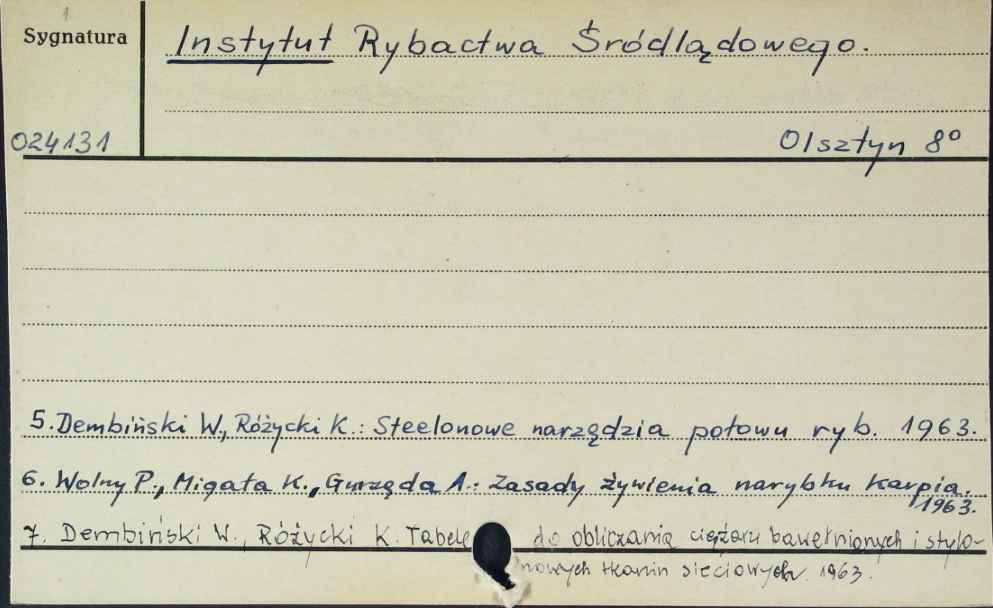 1
Sygnatura
Instytut Rybactwa Śródlądowego.
024131
Olsztyn 8°
5. Dembiński W., Różycki K.: Steelonowe narzędzia połowu ryb. 1963.
6. Wolny P., Migała K., Gurzęda A.: Zasady żywienia narybku karpia.
1963.
7. Dembiński W., Różycki K. Tabele do obliczania ciężaru bawełnionych i stylo-
nowych tkanin sieciowych. 1963.